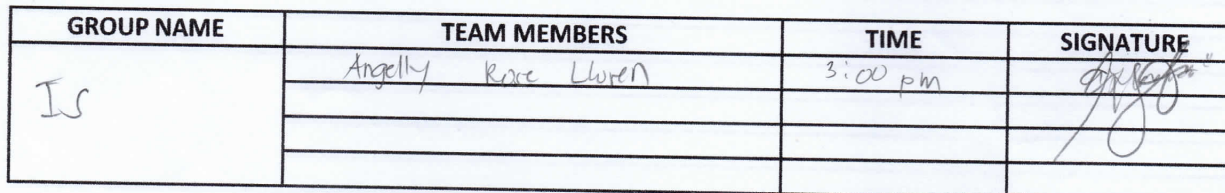 GROUP NAME TEAM MEMBERS TIME SIGNATURE
Angelly Rose Lluren 3:00 pm
IS